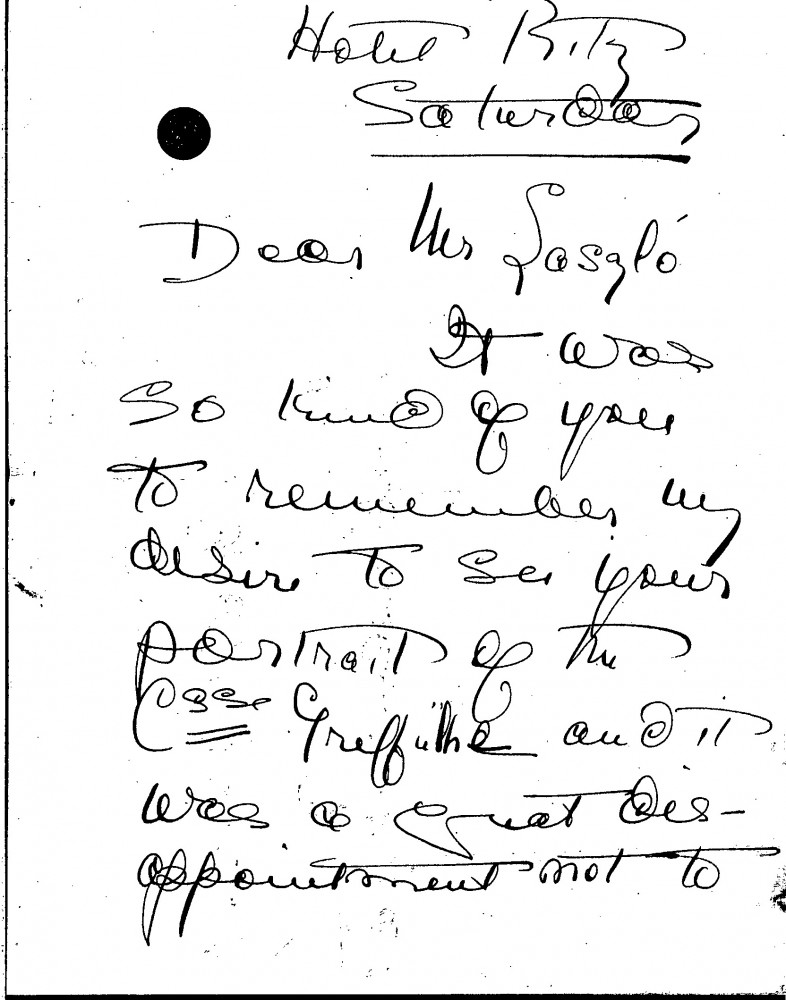 Hotel Ritz
Saturday
Dear Mr László
It was
so kind of you
to remember my
desire to see your
portrait of the
Csse Greffulhe and it
was a great dis-
appointment not to